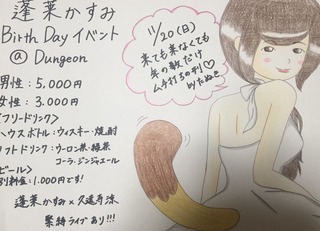 蓬莱かすみ
Birth Day イベント
@ Dungeon
男性：5,000円
女性：3,000円
フリードリンク〉
ハウスボトル：ウィスキー・焼酎
ソフトドリンク：ウーロン茶・緑茶
コーラ・ジンジャエール
ビール〉
別料金：1,000円です!
蓬莱かすみ×久遠寿涼
緊縛ライブあり!!!
11/20(日)
来ても来なくても
年の数だけ
ムチ打ちの刑♡
byたぬき